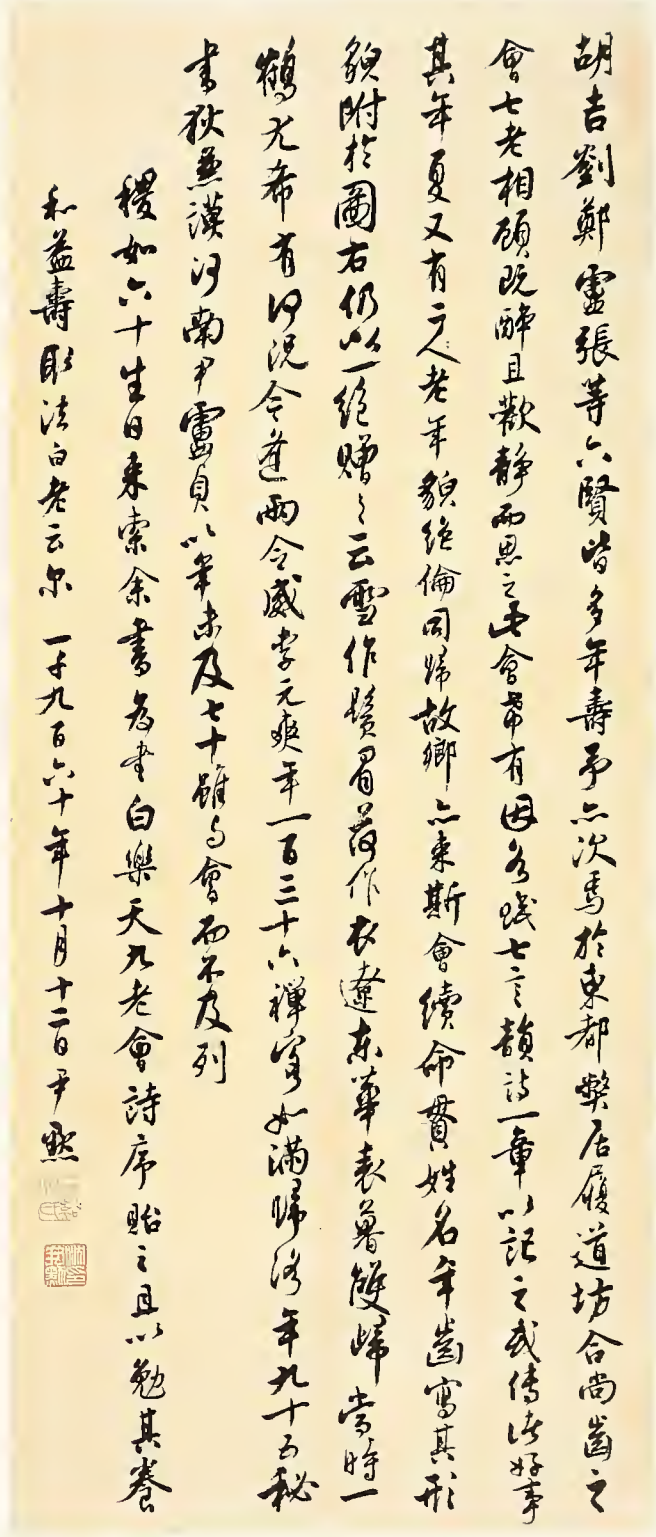 胡吉劉鄭盧張等六賢皆多年壽予亦次焉於東都弊居履道坊合尚齒之
會七老相顧既醉且歡靜而思之此會希有因各賦七言韻詩一章以記之或傳諸好事
其年夏又有二人老年貌絕倫同歸故鄉亦來斯會續命書姓名年齒寫其形
貌附於圖右仍以一絕贈之云雪作鬢眉雲作衣遼東華表暮雙歸當時一
鶴尤希有何況今逢兩令威李元爽年一百三十六禪客如滿歸洛年九十五秘
書狄兼謨河南尹盧貞以年未及七十雖與會而不及列
稷如六十生日來索余書為書白樂天九老會詩序貽之且以勉其養
和益壽取法白老云爾 一千九百六十年十月十二日尹默
沈尹默